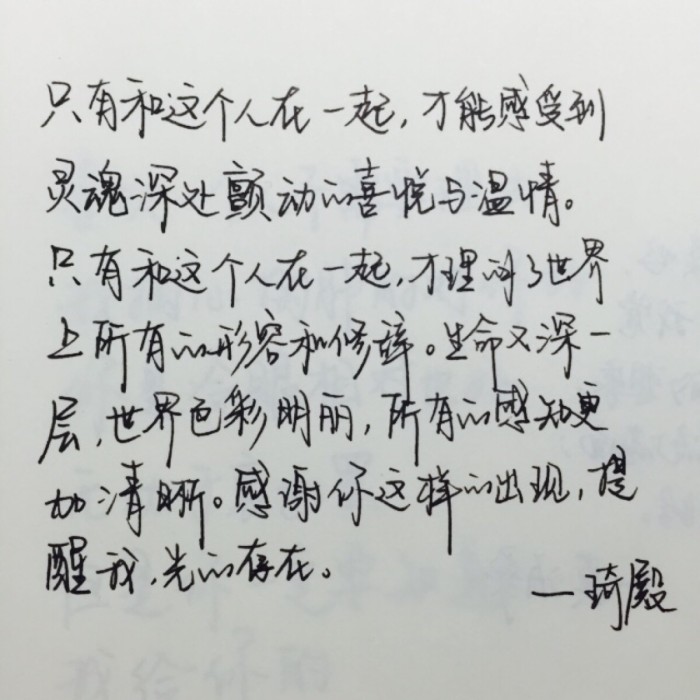 只有和这个人在一起，才能感受到
灵魂深处颤动的喜悦与温情。
只有和这个人在一起，才理解了世界
上所有的形容和修辞。生命又深一
层，世界色彩明丽，所有的感知更
加清晰。感谢你这样的出现，提
醒我，光的存在。
—琦殿